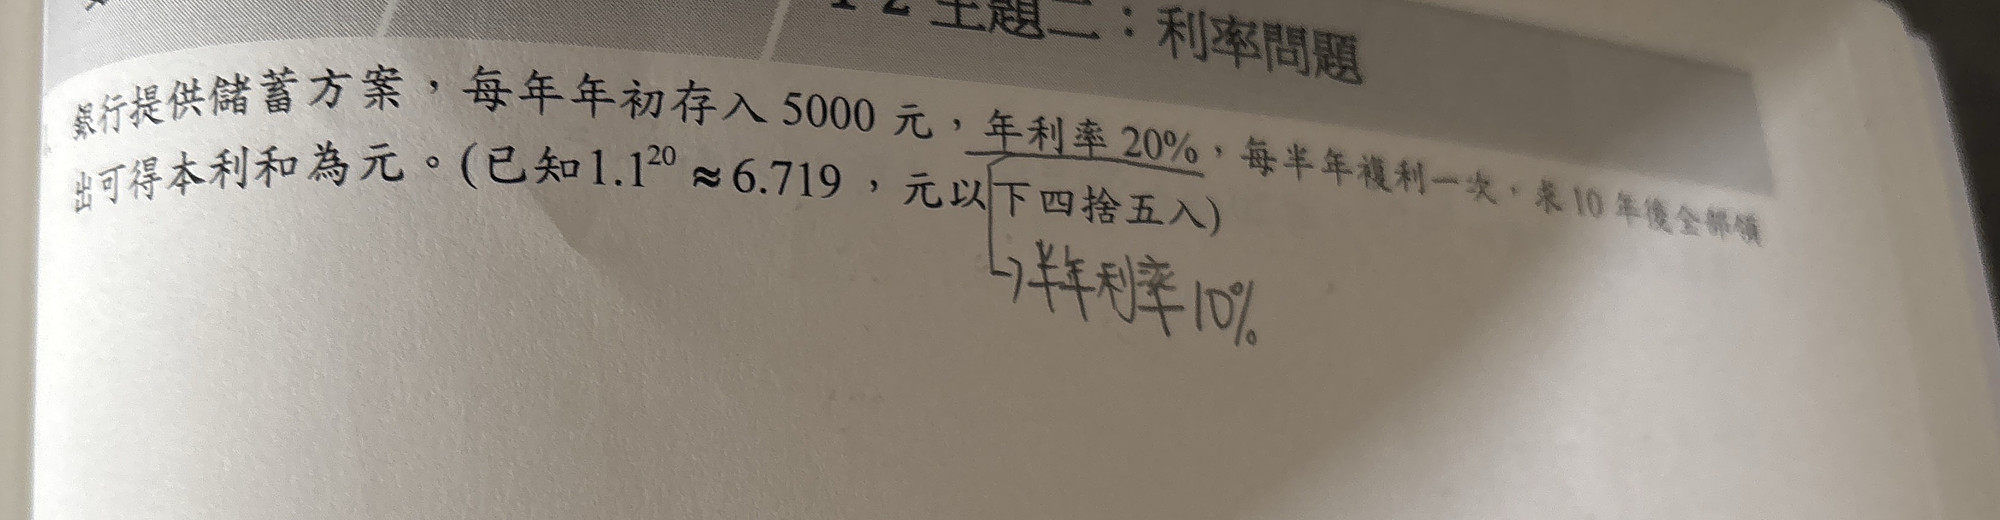 1-2 主題二：利率問題
銀行提供儲蓄方案，每年年初存入 5000 元，年利率 20%，每半年複利一次，求 10 年後全部領
出可得本利和為元。(已知1.1²⁰ ≈ 6.719，元以下四捨五入)
→半年利率10%